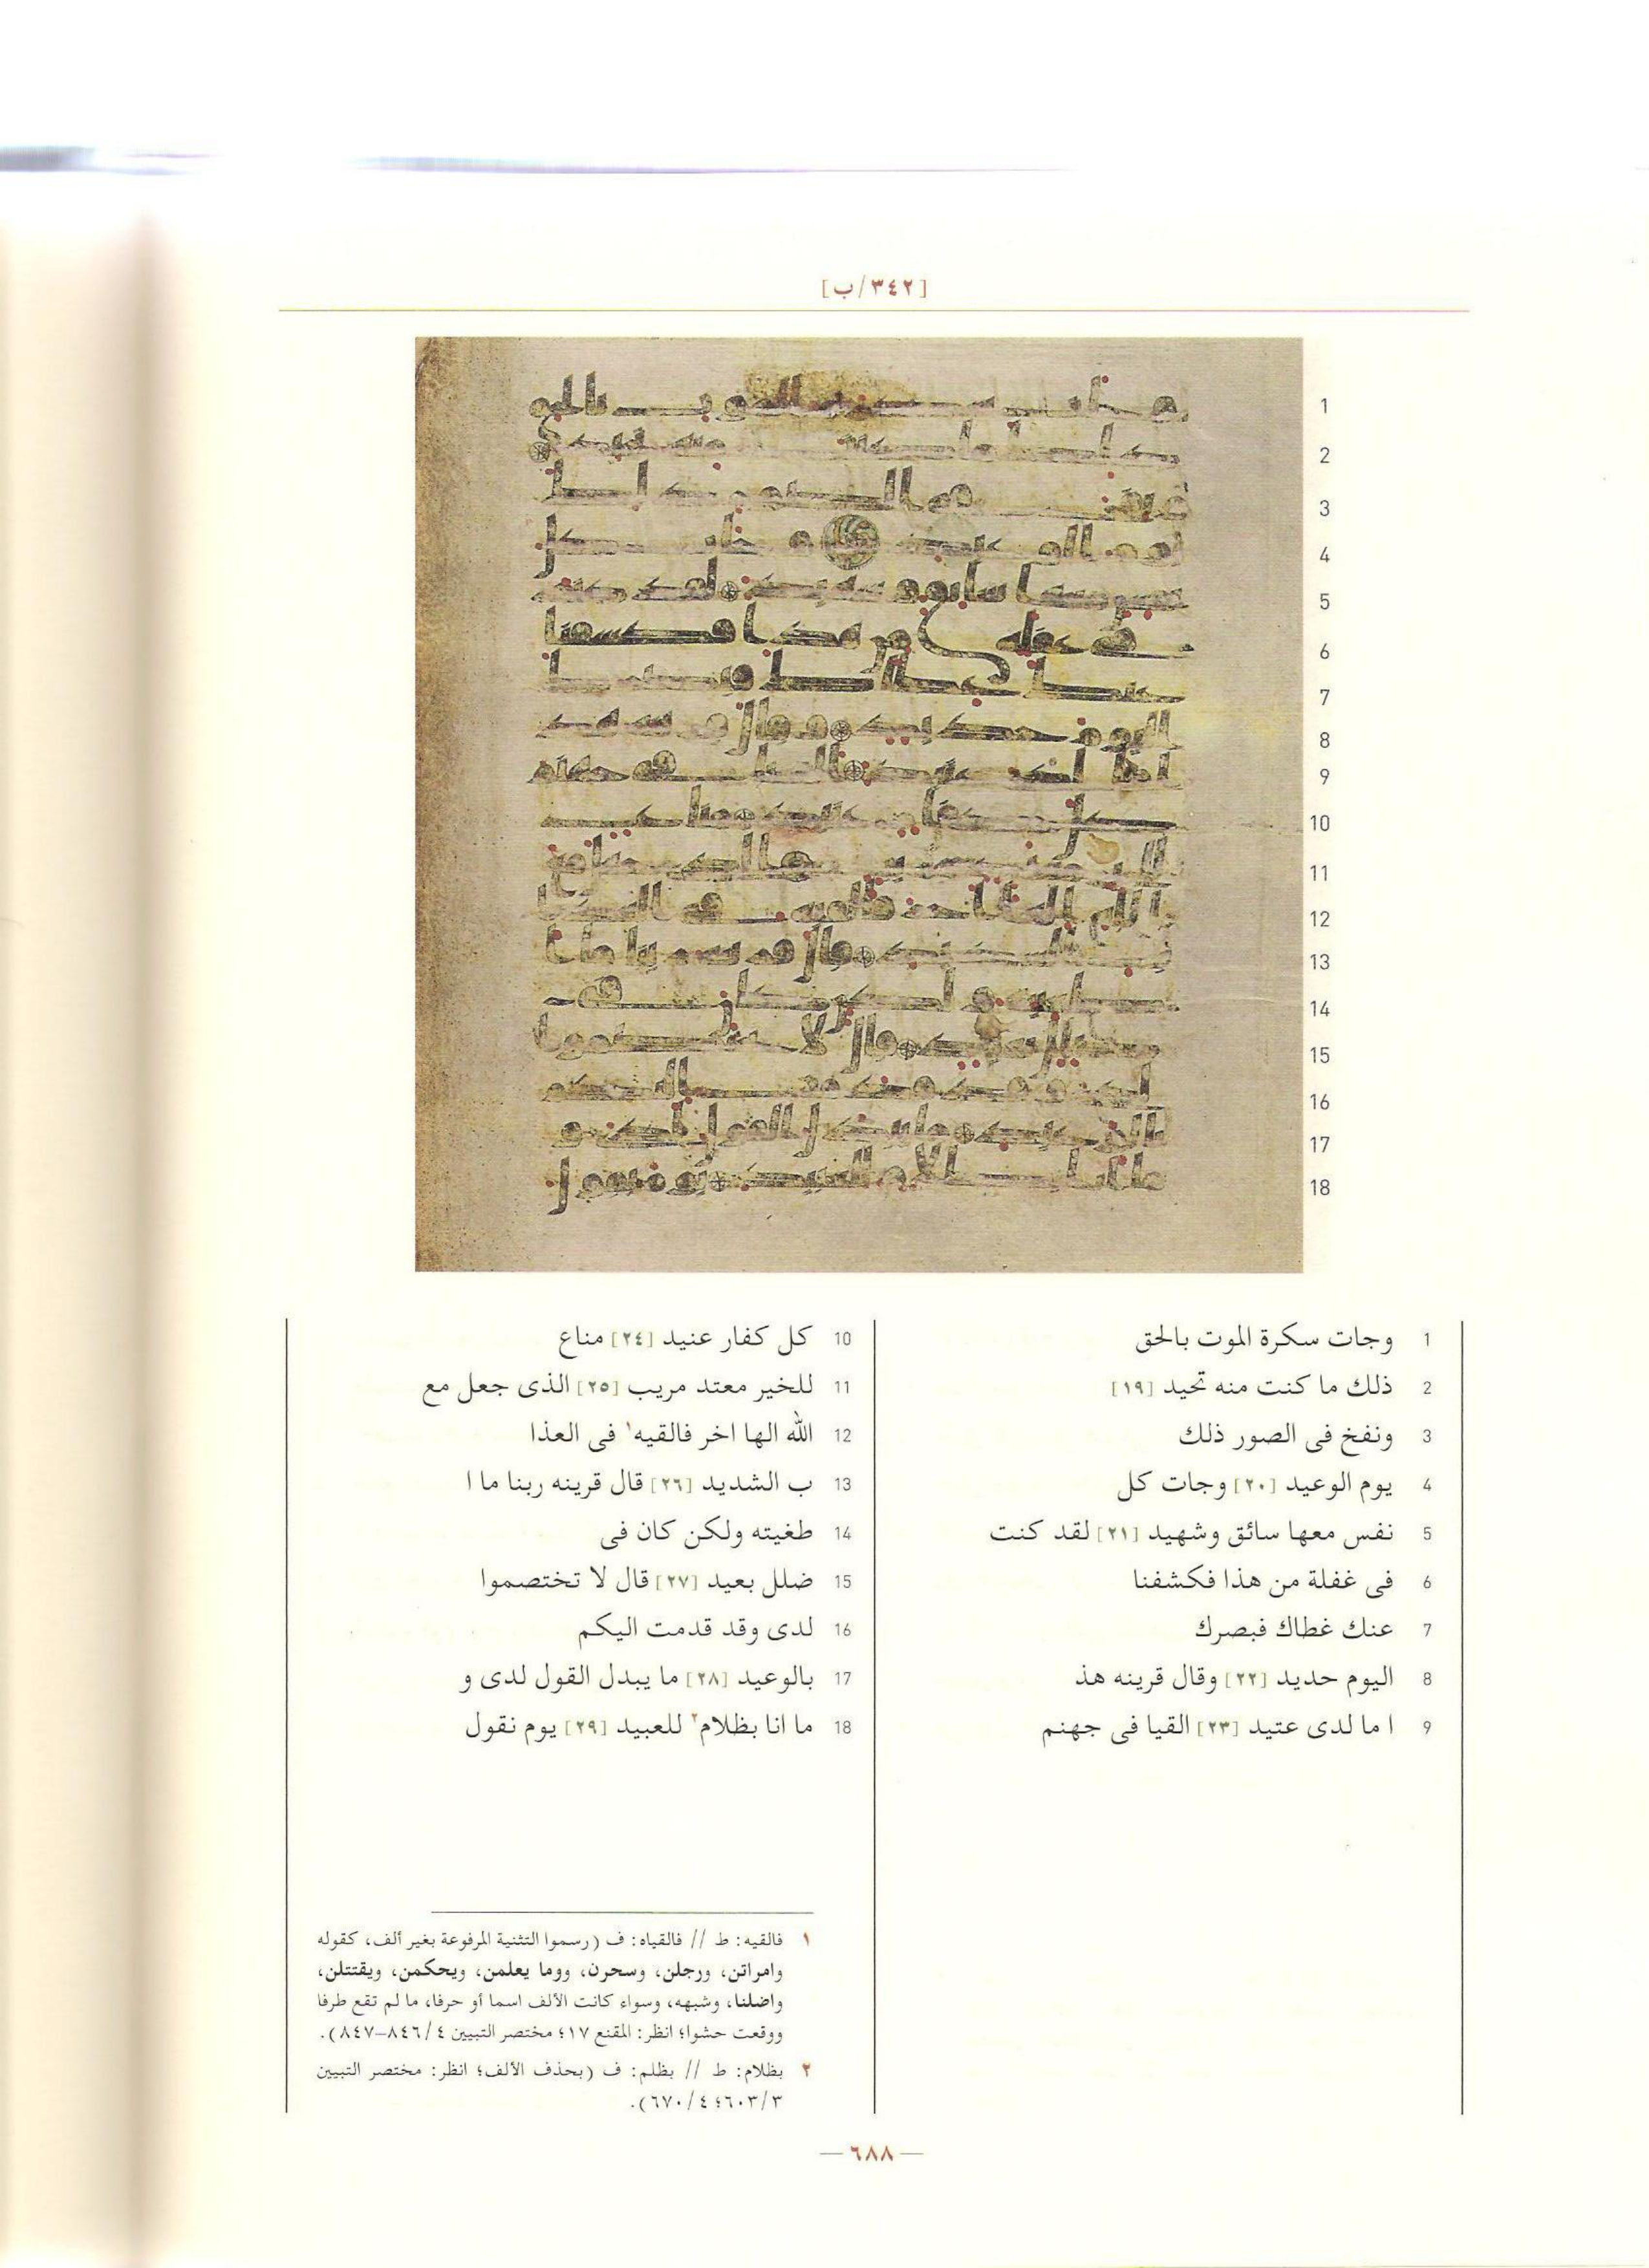 [٣٤٢/ب]
1 وجات سكرة الموت بالحق
2 ذلك ما كنت منه تحيد [١٩]
3 ونفخ فى الصور ذلك
4 يوم الوعيد [٢٠] وجات كل
5 نفس معها سائق وشهيد [٢١] لقد كنت
6 فى غفلة من هذا فكشفنا
7 عنك غطاك فبصرك
8 اليوم حديد [٢٢] وقال قرينه هذ
9 ا ما لدى عتيد [٢٣] القيا فى جهنم
10 كل كفار عنيد [٢٤] مناع
11 للخير معتد مريب [٢٥] الذى جعل مع
12 الله الها اخر فالقيه١ فى العذا
13 ب الشديد [٢٦] قال قرينه ربنا ما ا
14 طغيته ولكن كان فى
15 ضلل بعيد [٢٧] قال لا تختصموا
16 لدى وقد قدمت اليكم
17 بالوعيد [٢٨] ما يبدل القول لدى و
18 ما انا بظلام٢ للعبيد [٢٩] يوم نقول
١ فالقيه: ط // فالقياه: ف (رسموا التثنية المرفوعة بغير ألف، كقوله
وامراتن، ورجلن، وسحرن، ووما يعلمن، ويحكمن، ويقتتلن،
واضلنا، وشبهه، وسواء كانت الألف اسما أو حرفا، ما لم تقع طرفا
ووقعت حشوا؛ انظر: المقنع ١٧؛ مختصر التبيين ٤/ ٨٤٦-٨٤٧).
٢ بظلام: ط // بظلم: ف (بحذف الألف؛ انظر: مختصر التبيين
٣/ ٦٠٣؛ ٤/ ٦٧٠).
— ٦٨٨ —